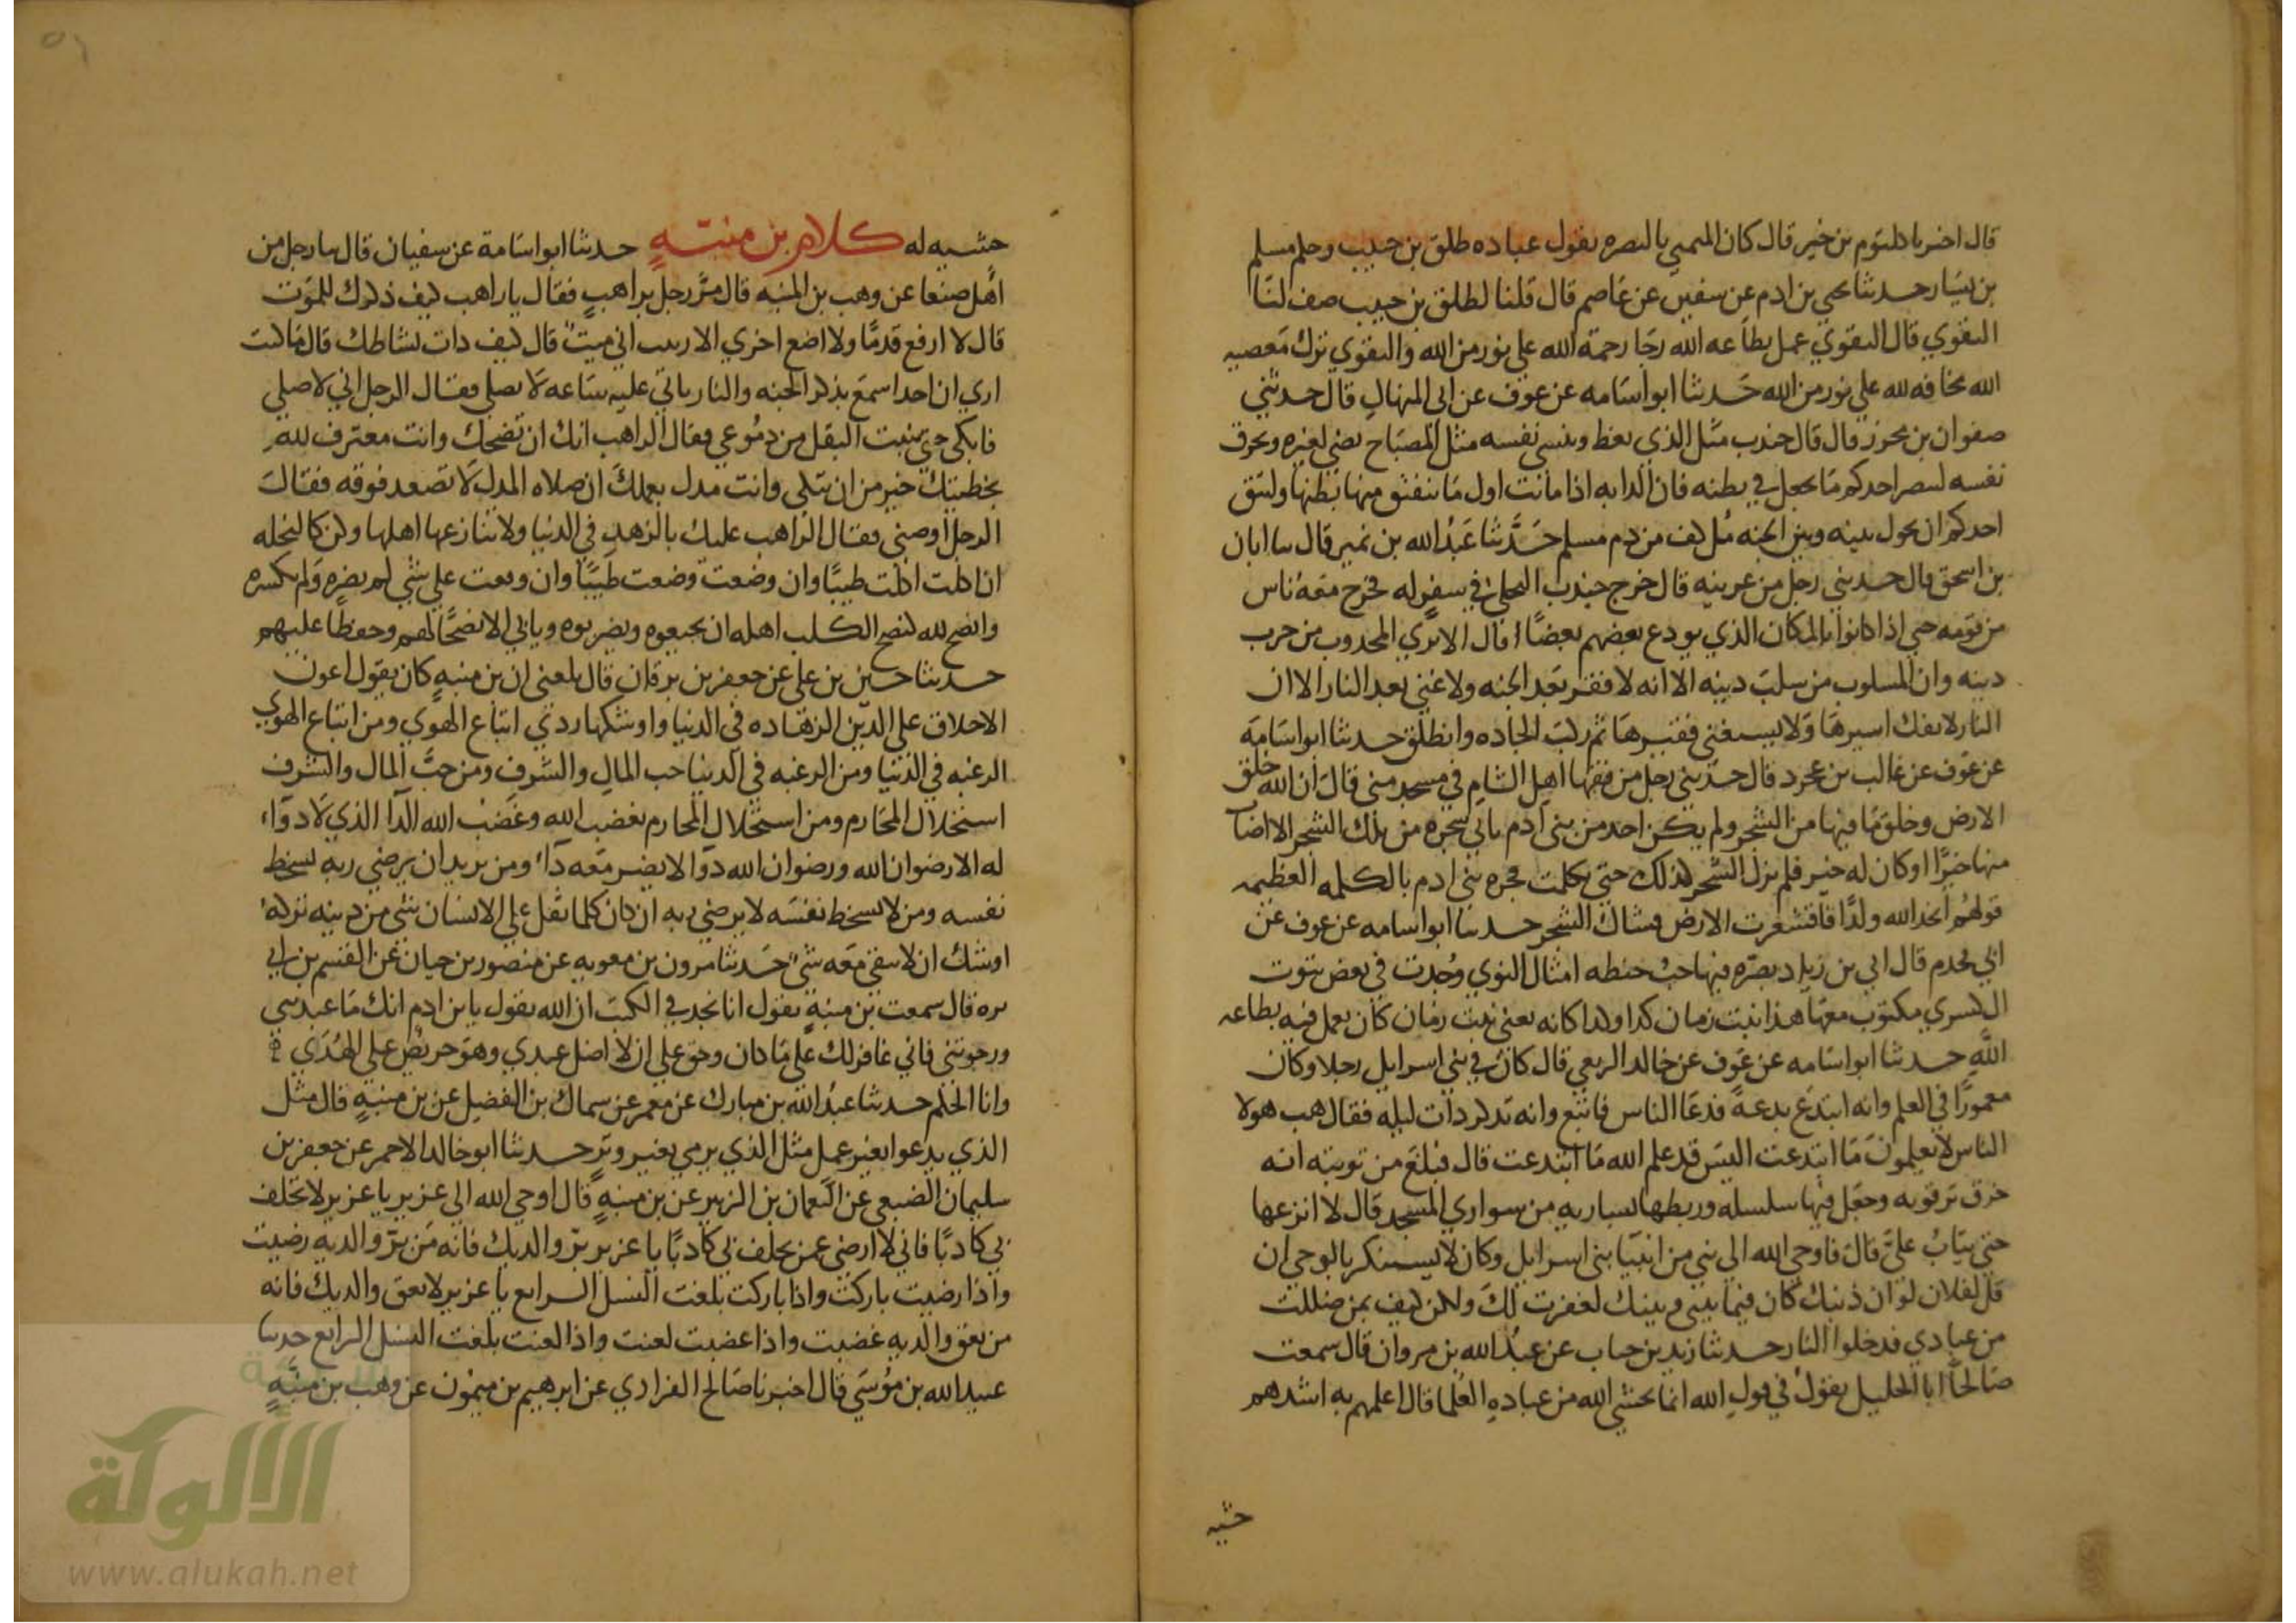 قال اخبرنا كلثوم بن خير قال كان المتمني بالبصره يقول عباده طلق بن حبيب وحلم مسلم
بن يسار حدثنا يحيي بن ادم عن سفين عن عاصم قال قلنا لطلق بن حبيب صف لنا
التقوي قال التقوي عمل بطاعه الله رجا رحمة الله علي نور من الله والتقوي ترك معصيه
الله مخافه لله علي نور من الله حدثنا ابو اسامه عن عوف عن ابي المنهال قال حدثني
صفوان بن محرز قال قال جندب مثل الذي يعظ وينسي نفسه مثل المصباح يضي لغيره ويحرق
نفسه لينصر احدكم ما يجعل في بطنه فان الدابه اذا ماتت اول ما ينفتق منها بطنها وليتق
احدكم ان يحول بينه وبين الجنه مل كف من دم مسلم حدثنا عبد الله بن نمير قال سا ابان
بن اسحق قال حدثني رجل من عرينه قال خرج جندب البجلي في سفر له فخرج معه ناس
من قومه حتي اذا كانوا بالمكان الذي يودع بعضهم بعضا قال الا تري المحروب من حرب
دينه وان المسلوب من سلب دينه الا انه لا فقر بعد الجنه ولا غني بعد النار الا ان
النار لا يفك اسيرها ولا يستغني فقيرها ثم ركب الجاده وانطلق حدثنا ابو اسامة
عن عوف عن غالب بن عجرد قال حدثني رجل من فقها اهل الشام في مسجد مني قال ان الله خلق
الارض وخلق ما فيها من الشجر ولم يكن احد من بني ادم ياتي شجره من تلك الشجر الا اصاب
منها خيرا او كان له خير فلم يزل الشجر كذلك حتي تكلمت فجره بني ادم بالكلمه العظيمه
قولهم اتخذ الله ولدا فاقشعرت الارض فشاك الشجر حدثنا ابو اسامه عن عوف عن
ابي محدم قال اتي بن زياد بصره فيها حب حنطه امثال النوي وجدت في بعض بيوت
ال كسري مكتوب معها هذا نبت زمان كذا وكذا كانه يعني نبت زمان كان يعمل فيه بطاعه
الله حدثنا ابو اسامه عن عوف عن خالد الربعي قال كان في بني اسرايل رجلا وكان
معمورا في العلم وانه ابتدع بدعة فدعا الناس فاتبع وانه تذكر ذات ليله فقال هب هولا
الناس لا يعلمون ما ابتدعت اليس قد علم الله ما ابتدعت قال فبلغ من توبته انه
خرق ترقوته وجعل فيها سلسله وربطها بساريه من سواري المسجد قال لا انزعها
حتي يتاب علي قال فاوحي الله الي نبي من انبيا بني اسرايل وكان لا يستنكر بالوحي ان
قل لفلان لو ان ذنبك كان فيما بيني وبينك لغفرت لك ولكن كيف بمن ضللت
من عبادي فدخلوا النار حدثنا زيد بن حباب عن عبد الله بن مروان قال سمعت
صالحا ابا الخليل يقول في قول الله انما يخشي الله من عباده العلما قال اعلمهم به اشدهم
خشيه
خشيه له كلام بن منبه حدثنا ابو اسامة عن سفيان قال سا رجل من
اهل صنعا عن وهب بن المنبه قال مر رجل براهب فقال يا راهب كيف ذكرك للموت
قال لا ارفع قدما ولا اضع اخري الا ريب اني ميت قال كيف داب نشاطك قال ما كنت
اري ان احدا سمع بذكر الجنه والنار ياتي عليه ساعه لا يصلي فقال الرجل اني لاصلي
فابكي حتي ينبت البقل من دموعي فقال الراهب انك ان تضحك وانت معترف لله
بخطيتك خير من ان تبكي وانت مدل بعملك ان صلاه المدل لا تصعد فوقه فقال
الرجل اوصني فقال الراهب عليك بالزهد في الدنيا ولا تنازعها اهلها وكن كالنحله
ان اكلت اكلت طيبا وان وضعت وضعت طيبا وان وقعت علي شي لم يضره ولم تكسره
وانصح لله نصح الكلب اهله ان يجيعوه ويضربوه ويابي الا نصحا لهم وحفظا عليهم
حدثنا حسين بن علي عن جعفر بن برقان قال بلغني ان بن منبه كان يقول اعون
الاخلاق علي الدين الزهاده في الدنيا واوشكها ردي اتباع الهوي ومن اتباع الهوي
الرغبه في الدنيا ومن الرغبه في الدنيا حب المال والشرف ومن حب المال والشرف
استحلال المحارم ومن استحلال المحارم يغضب الله وغضب الله الدا الذي لا دواء
له الا رضوان الله ورضوان الله دوا لا يضر معه داء ومن يريد ان يرضي ربه يسخط
نفسه ومن لا يسخط نفسه لا يرضي ربه ان كان كلما ثقل علي الانسان شي من دينه تركه
اوشك ان لا يبقي معه شي حدثنا مرون بن معويه عن منصور بن حيان عن القسم بن ابي
بره قال سمعت بن منبه يقول انا نجد في الكتب ان الله يقول يا بن ادم انك ما عبدتني
ورجوتني فاني غافر لك علي ما كان وحق علي ان لا اضل عبدي وهو حريص علي الهدي
وانا الحكم حدثنا عبد الله بن مبارك عن معمر عن سماك بن الفضيل عن بن منبه قال مثل
الذي يدعوا بغير عمل مثل الذي يرمي بغير وتر حدثنا ابو خالد الاحمر عن جعفر بن
سليمان الضبعي عن النعمان بن الزبير عن بن منبه قال اوحي الله الي عزير يا عزير لا تحلف
بي كاذبا فاني لا ارضي عمن يحلف بي كاذبا يا عزير بر والديك فانه من بر والديه رضيت
واذا رضيت باركت واذا باركت بلغت النسل الرابع يا عزير لا تعق والديك فانه
من يعق والديه غضبت واذا غضبت لعنت واذا لعنت بلغت النسل الرابع حدثنا
عبيد الله بن موسي قال اخبرنا صالح الفزاري عن ابرهيم بن ميمون عن وهب بن منبه
شبكة
الألوكة
www.alukah.net